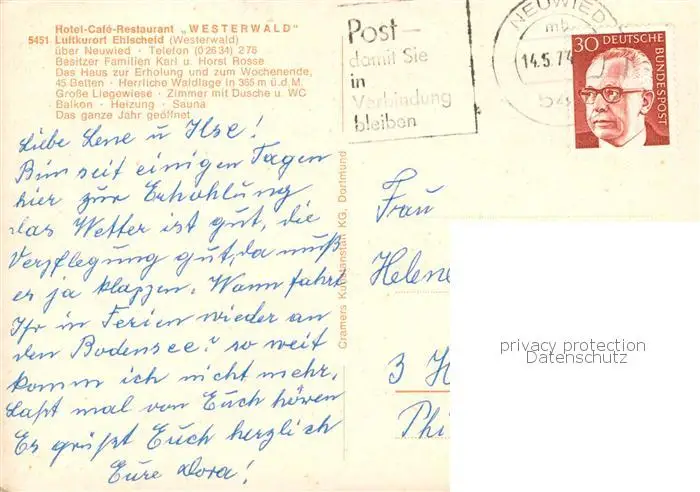 Hotel-Café-Restaurant „WESTERWALD"
5451 Luftkurort Ehlscheid (Westerwald)
über Neuwied · Telefon (0 26 34) 2 76
Besitzer Familien Karl u. Horst Rosse
Das Haus zur Erholung und zum Wochenende,
45 Betten · Herrliche Waldlage in 365 m ü.d.M.
Große Liegewiese · Zimmer mit Dusche u. WC
Balkon · Heizung · Sauna
Das ganze Jahr geöffnet
Liebe Lene u Ilse!
Bin seit einigen Tagen
hier zur Erhohlung
das Wetter ist gut, die
Verpflegung gut, da muß
es ja klappen. Wann fahrt
Ihr in Ferien wieder an
den Bodensee? so weit
komm ich nicht mehr.
Laßt mal von Euch hören
Es grüßt Euch herzlich
Eure Dora!
Cramers Kunstanstalt KG, Dortmund
Post-
damit Sie
in
Verbindung
bleiben
NEUWIED
mb
14.5.77
30 DEUTSCHE
BUNDESPOST
Frau
Helene
3 H
Phi
privacy protection
Datenschutz